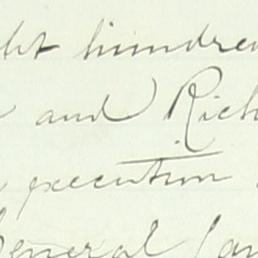 ght hundred
and Rich
execution
General Lan